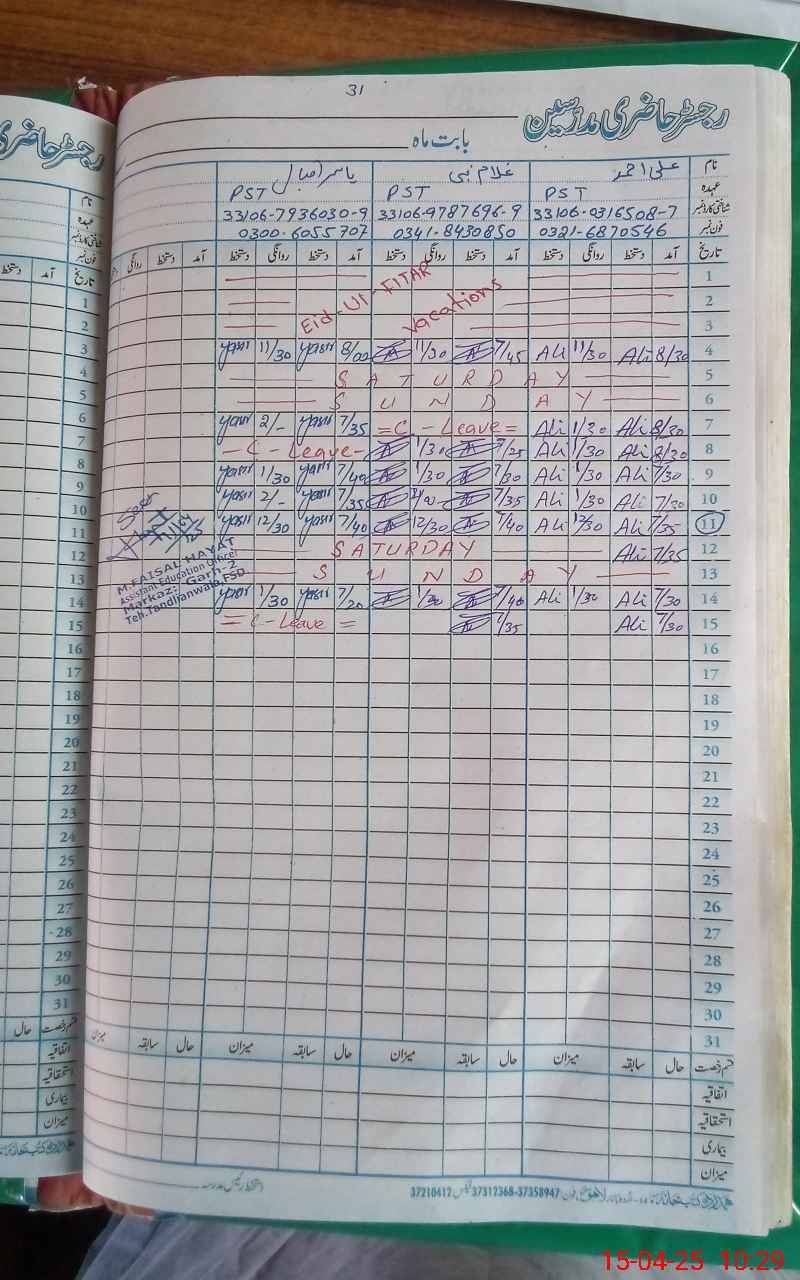 31
رجسٹر حاضری مدرسین
بابت ماہ
نام علی احمد غلام نبی یاسر اقبال
عہدہ PST PST PST
شناختی کارڈ نمبر 33106-0316508-7 33106-9787696-9 33106-7936030-9
فون نمبر 0321-6870546 0341-8430850 0300-6055707
تاریخ آمد دستخط روانگی دستخط آمد دستخط روانگی دستخط آمد دستخط روانگی دستخط آمد دستخط روانگی
1
2 Eid-Ul-FITAR
3 Vacations
4 8/30 Ali 11/30 Ali 7/45 11/30 8/00 Yasir 11/30 Yasir
5 SATURDAY
6 SUNDAY
7 8/30 Ali 1/30 Ali =C-Leave= 7/35 Yasir 2/- Yasir
8 8/30 Ali 1/30 Ali 7/25 1/30 -C-Leave-
9 7/30 Ali 1/30 Ali 7/30 1/30 7/40 Yasir 1/30 Yasir
10 7/30 Ali 1/30 Ali 7/35 7/35 Yasir 2/- Yasir
11 7/35 Ali 12/30 Ali 7/40 12/30 7/40 Yasir 12/30 Yasir
12 7/35 Ali SATURDAY
13 SUNDAY
14 7/30 Ali 1/30 Ali 7/40 1/30 7/20 Yasir 1/30 Yasir
15 7/30 Ali 7/35 =C-Leave=
16
17
18
19
20
21
22
23
24
25
26
27
28
29
30
31
قسم رخصت حال سابقہ میزان حال سابقہ میزان حال سابقہ میزان
اتفاقیہ
استحقاقیہ
بیماری
میزان
37210412 فیکس 37312368-37358947 فون
M.FAISAL HAYAT
Assistant Education Officer
Markaz: Garh-2
Teh.Tandlianwala,FSD
رجسٹر حاضری
نام
عہدہ
شناختی کارڈ نمبر
فون نمبر
تاریخ آمد دستخط
1
2
2
3
4
5
6
7
8
9
10
11
12
13
14
15
16
17
18
19
20
21
22
23
24
25
26
27
28
29
30
31
قسم رخصت حال
اتفاقیہ
استحقاقیہ
بیماری
میزان
15-04-25 10:29